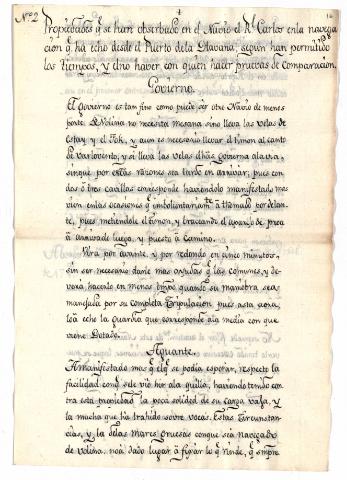 Nº2
Propiedades q.e se han observado en el Navio el R.l Carlos en la navega
cion q.e ha echo desde el Puerto de la Havana, segun han permitido
los tiempos, y el no haver con quien hacer pruevas de comparacion.
Govierno.
El Govierno es tan fino como puede ser otro Navio de menos
porte. De Volina no necesita mesana sino lleva las velas de
Estay y el Fok, y aun es necesario llevar el timon al canto
de varlovento, y si lleva las velas dhas govierna a la via,
sin que por estas razones sea tardo en arrivar; pues con
dos ò tres cavillas corresponde haviendolo manifestado mas
vien en las ocasiones q.e imboluntariam.te à thomado por delan-
te, pues metiendole el timon, y braceando el aparejo de proa
à arrivado luego, y puesto à camino.
Vira por avante, y por redondo en cinco minutos,
sin ser necesario darle mas ayudas q.e las comunes, y de-
verà hacerlo en menos tmpo quando su maniobra sea
manejada por su completa Tripulacion pues asta aora,
lo à echo la Guardia que corresponde à la media con que
viene Dotado.
Aguante.
A manifestado mas q.e el q.e se podia esperar, respecto la
facilidad con q.e se le viò hir a la quilla, haviendo tenido con
tra esta propiedad la poca solided de su carga vaja, y
la mucha que ha trahido sovre vocas. Estas circunstan-
cias, y la de las mares gruesas con que se à navegado
de volina, no à dado lugar à fijar lo q.e rinde, q.e siempre